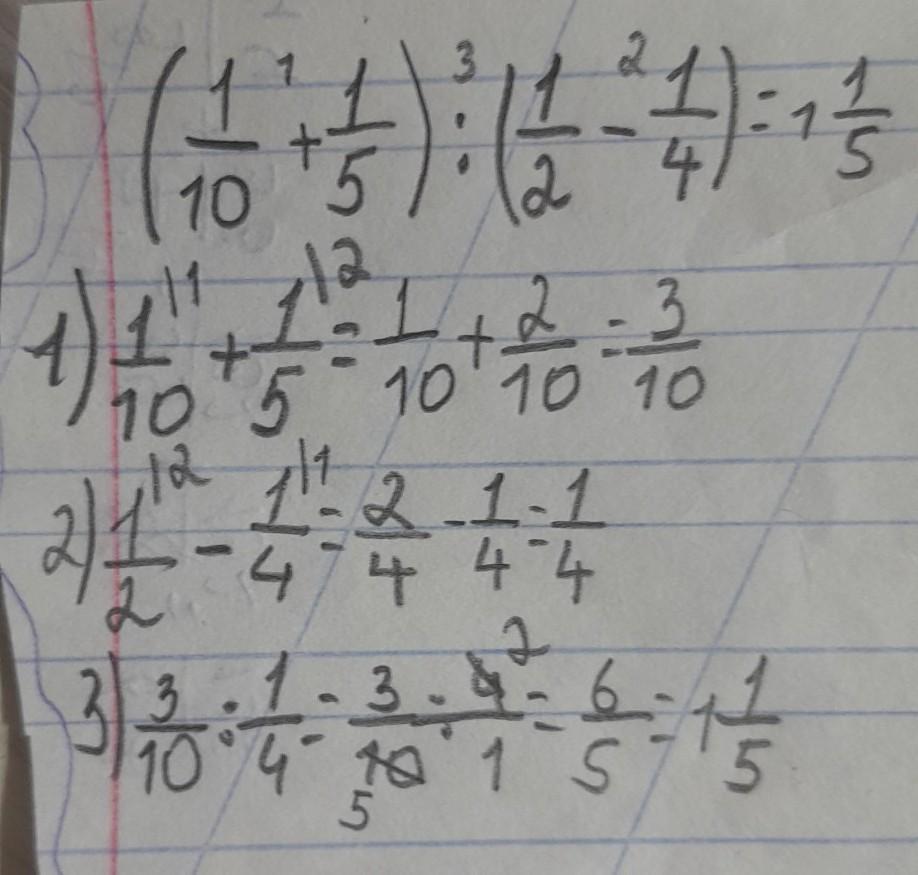 (1/10 +¹ 1/5) :³ (1/2 -² 1/4) = 1 1/5
1) 1/10 |1 + 1/5 |2 = 1/10 + 2/10 = 3/10
2) 1/2 |2 - 1/4 |1 = 2/4 - 1/4 = 1/4
3) 3/10 : 1/4 = 3 · 4 2 / 5 10 · 1 = 6/5 = 1 1/5